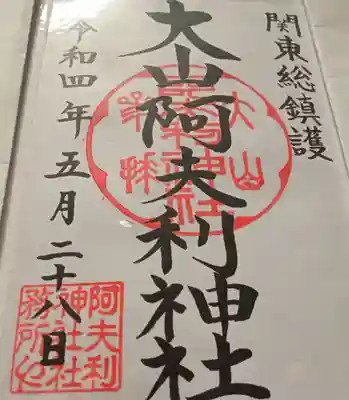 関東総鎮護
大山阿夫利神社
令和四年五月二十八日
阿夫利
神社社
務所也